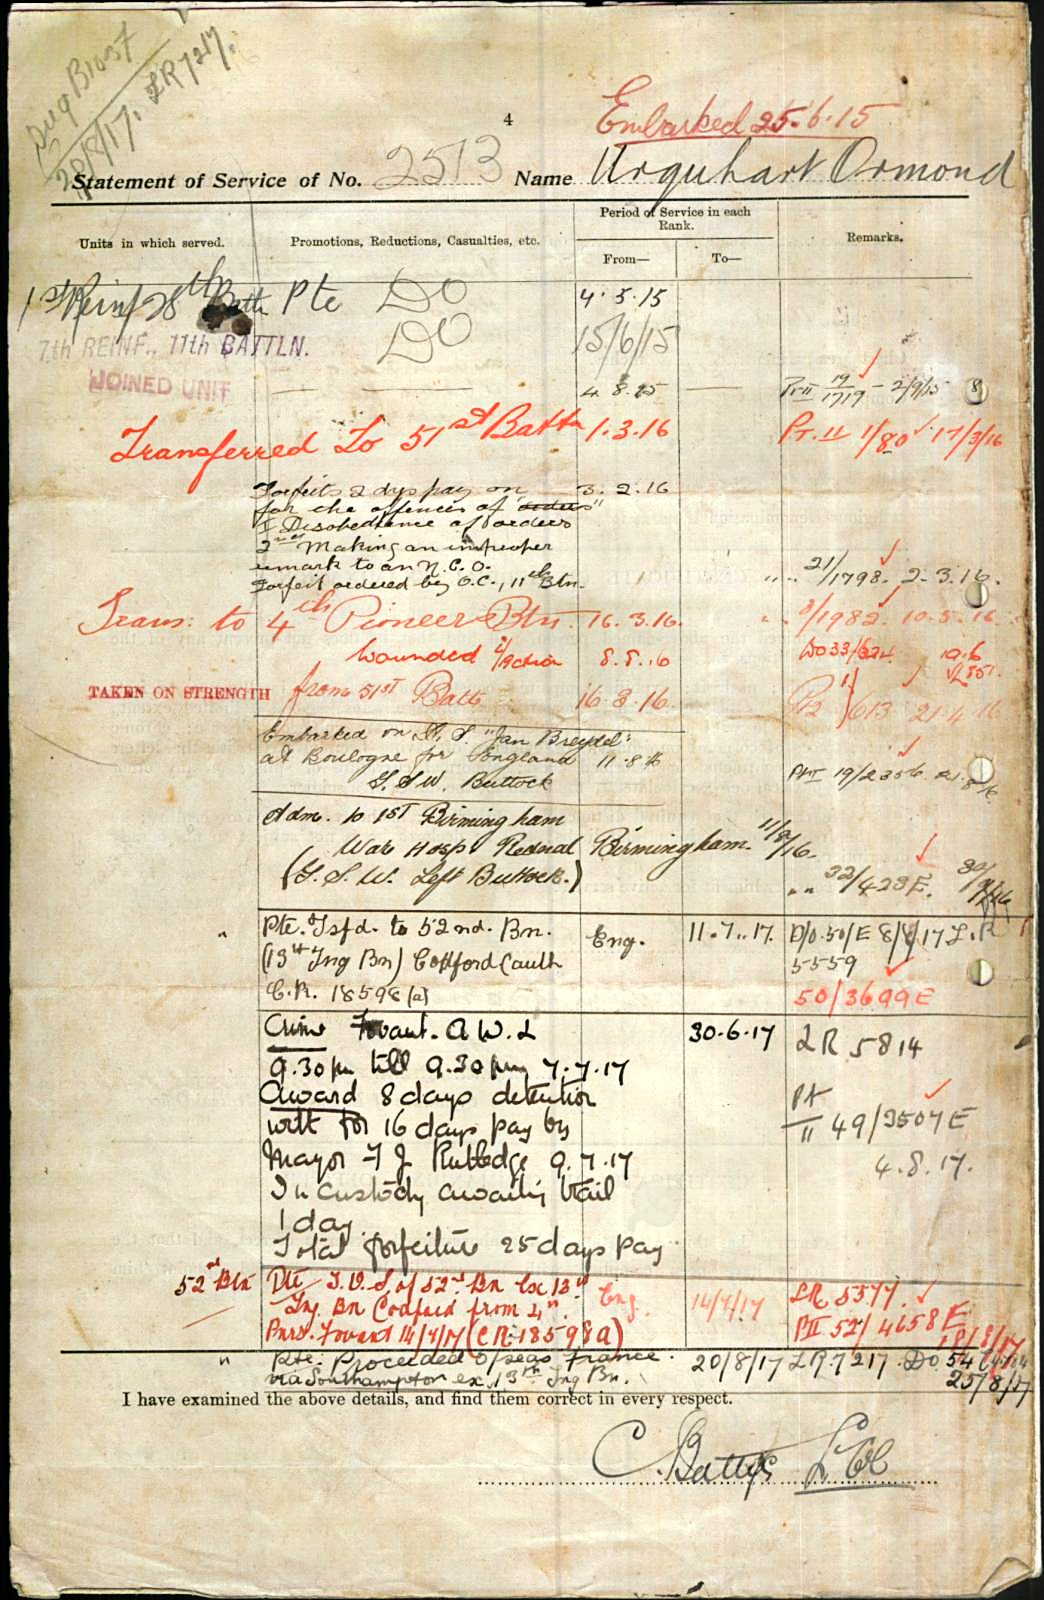 Aug B1037
20/8/17. LR 7217.
4
Embarked 25.6.15
Statement of Service of No. 2513 Name Urquhart Ormond
Units in which served.
Promotions, Reductions, Casualties, etc.
Period of Service in each Rank.
From—
To—
Remarks.
1st Reinf 28th Battn Pte DO 4.5.15
7th REINF., 11th BATTLN. DO 15/6/15
JOINED UNIT 4.8.15 19/1719 - 2/9/15
Transferred to 51st Battn 1.3.16 PT. II 1/80 17/3/16
Forfeits 2 dys pay on 3.2.16
for the offences of "orders"
1 Disobedience of orders
2nd Making an improper
remark to an N.C.O.
Forfeit ordered by O.C., 11th Btn. " " 21/1798. 2.3.16.
Trans: to 4th Pioneer Btn. 16.3.16. 8/1982. 10.5.16
Wounded i/action 8.8.16
TAKEN ON STRENGTH from 51st Batt 16.3.16. Pt2 /613 21.4.16
Embarked on H.S "Jan Breydel"
at Boulogne for England 11.8.16
G.S.W. Buttock Pt II 19/2306.
Adm. to 1st Birmingham
War Hosp Rednal Birmingham. 11/8/16.
(G.S.W. Left Buttock.) " " 32/428E.
" Pte. Tsfd. to 52nd. Bn. Eng. 11.7.17. D/O.50/E 8/8/17 L.R
(13th Tng Bn) Codford (auth 5559
C.R. 18598(a) 50/3699E
Crime Fovant. A W. L 30.6.17 LR 5814
9.30pm till 9.30pm 7.7.17
Award 8 days detention
with for 16 days pay by Pt II 49/3507E
Mayor F J Rutledge 9.7.17 4.8.17.
In custody awaiting trail
1 day
Total forfeiture 25 days pay
52nd Btn Pte T.O.S. of 52nd Bn ex 13th Eng. 14/7/17 LR 5577.
Tng. Bn Codford from 4th PII 52/4658E
Pnrs. Fovant 14/7/17 (CR. 18598a) 18/8/17
" Pte. Proceeded O/seas France. 20/8/17 LR 7217. DO 54
via Southampton ex. 13th Tng Bn. 25/8/17
I have examined the above details, and find them correct in every respect.
C. Battye